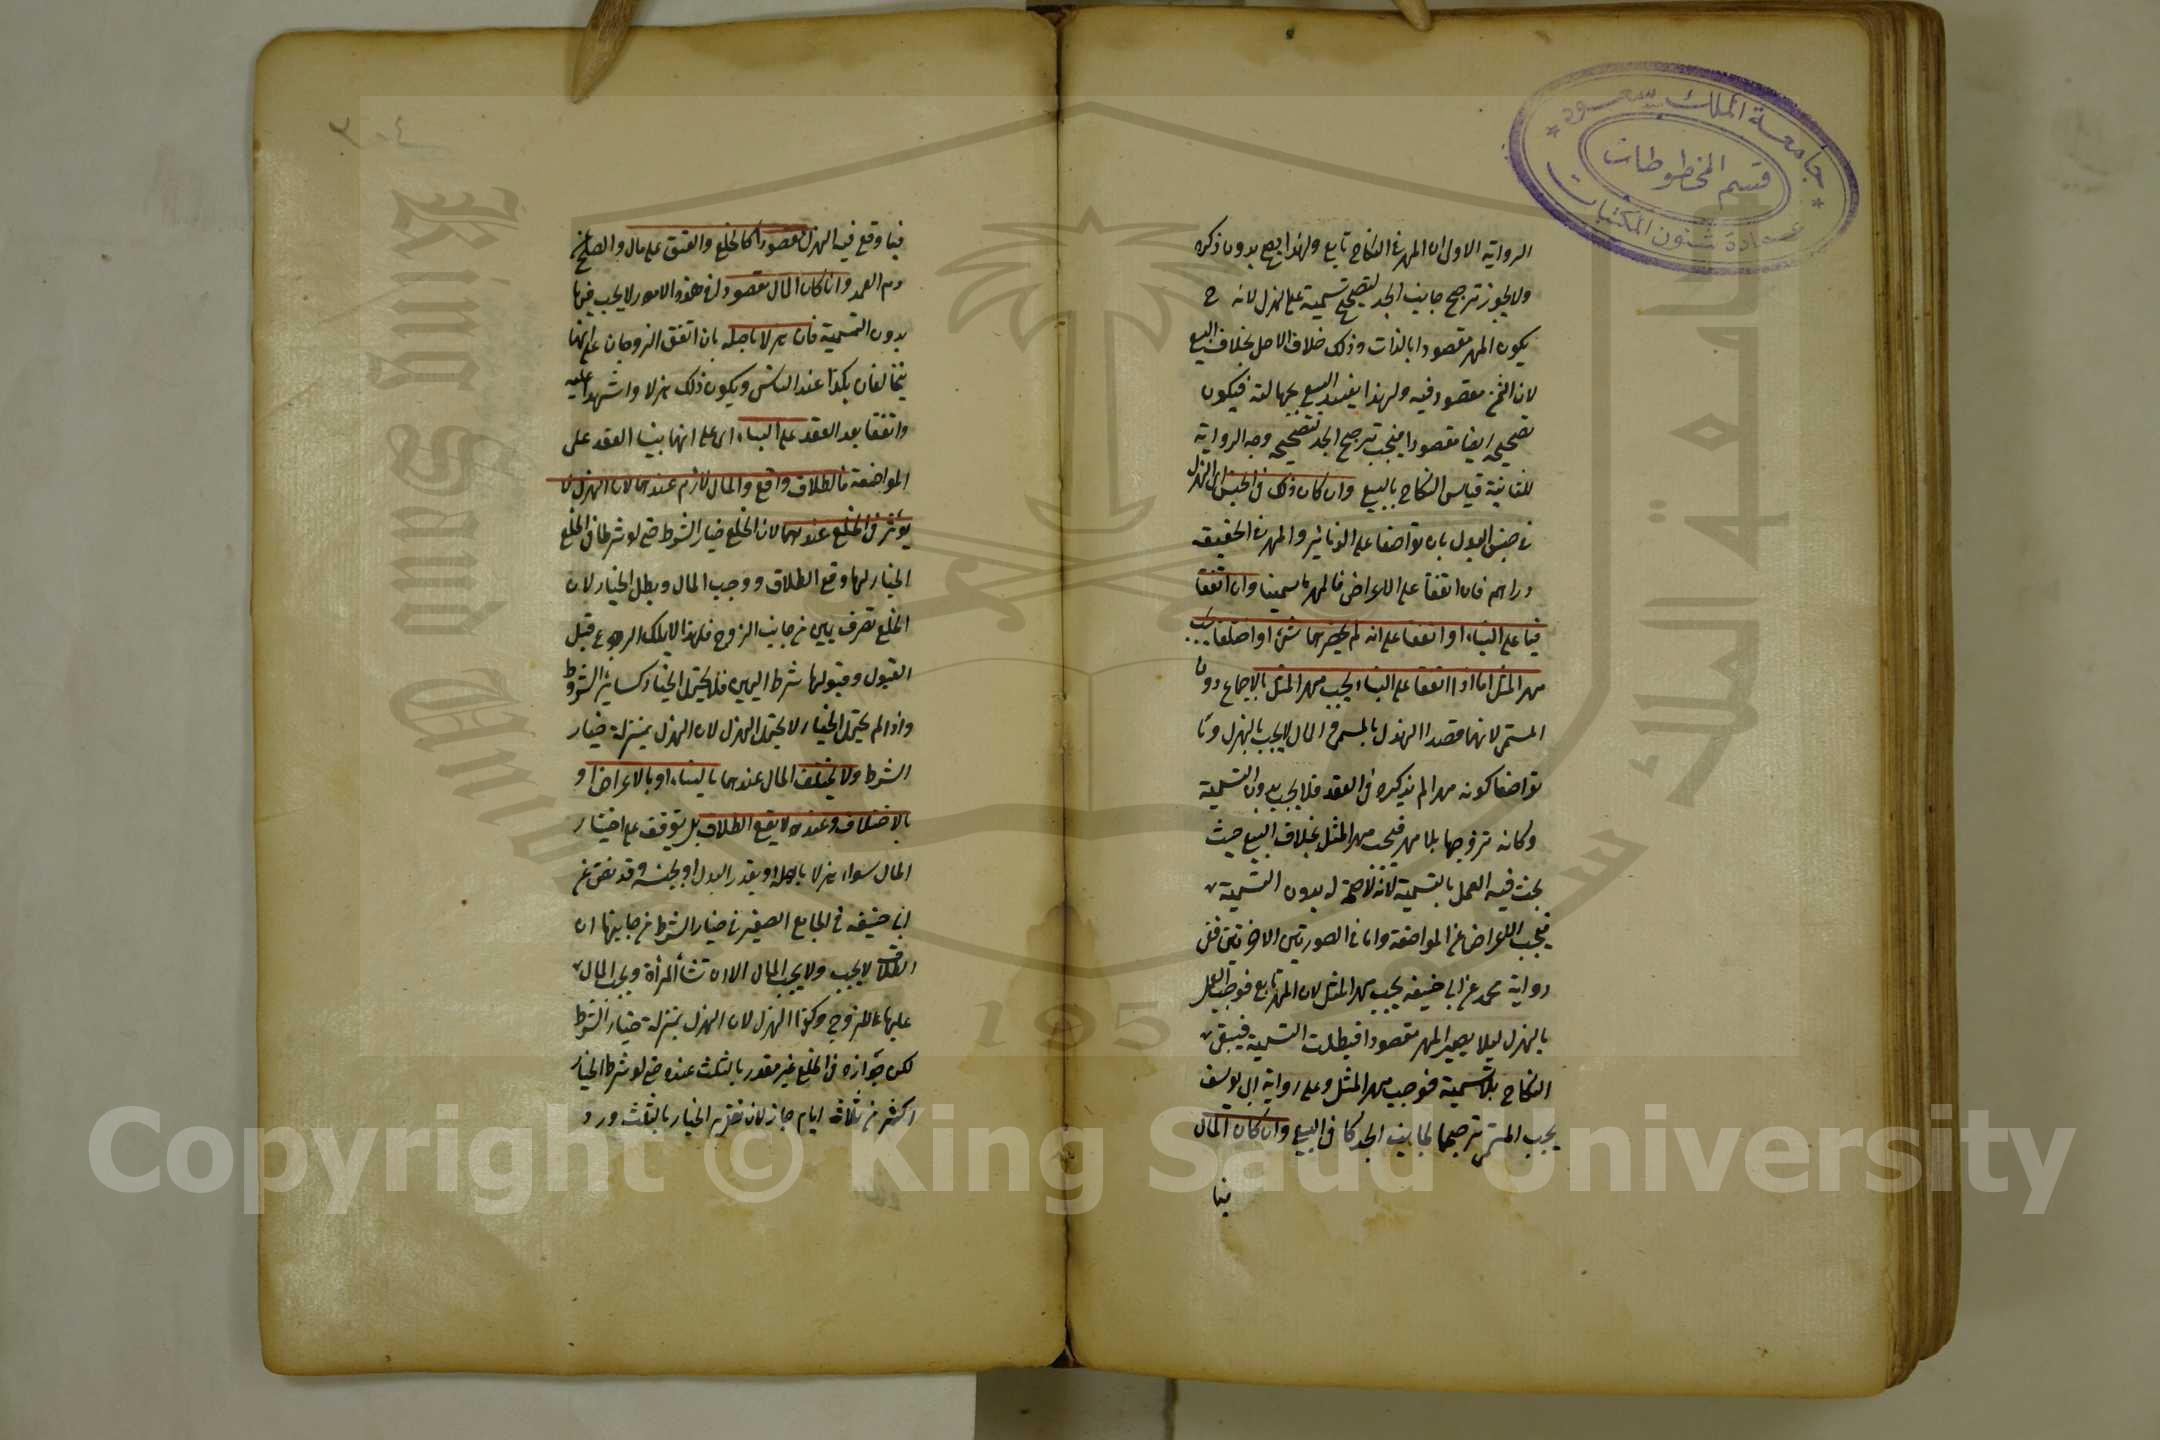 جامعة الملك سعود
قسم المخطوطات
عمادة شئون المكتبات
الرواية الاولى ان المهر في النكاح تابع ولهذا يصح بدون ذكره
ولا يجوز ترجيح جانب الجد لتصحيح تسمية على الهزل لانه ح
يكون المهر مقصودا بالذات وذلك خلاف الاصل بخلاف البيع
لان الثمن مقصود فيه ولهذا يفسد البيع بجهالته فيكون
تصحيحه ايضا مقصودا فيجب ترجيح الجد لتصحيحه وجه الرواية
للثانية قياس النكاح بالبيع وان كان ذلك في الجنس اى الهزل
في جنس البدل بان تواضعا على الدنانير والمهر في الحقيقة
دراهم فان اتفقا على الاعراض فالمهر ما سمينا وان اتفقا
فيا على البناء او اتفقا على انه لم يحضرهما شئ او اختلفا يجب
مهر المثل اما اذا اتفقا على البناء يجب مهر المثل بالاجماع دون
المسمى لانهما قصدا الهزل بالمسمى و المال لا يجب بالهزل وما
تواضعا كونه مهرا لم يذكره في العقد فلا يجب بدون التسمية
وكانه تزوجها بلا مهر فيجب مهر المثل بخلاف البيع حيث
يجب فيه العمل بالتسمية لانه لا صحة له بدون التسمية
فيجب الاعراض عن المواضعة واما في الصورتين الاخرتين ففى
رواية محمد عن ابى حنيفة يجب مهر المثل لان المهر تابع فوجب العمل
بالهزل ليلا يصير المهر مقصودا فبطلت التسمية فيبقى
النكاح بلا تسمية فوجب مهر المثل وعلى رواية ابى يوسف
يجب المسمى ترجيحا لجانب الجد كما في البيع وان كان المال
فيا
٣٠٤
فيا وقع فيه الهزل مقصودا كالخلع والعتق على مال والصلح عن
دم العمد وانا كان المال مقصود في هذه الامور لا يجب فيها
بدون التسمية فان هزلا باصله بان اتفق الزوجان على انهما
يتخالعان بكذا عند الناس ويكون ذلك هزلا واشهدا عليه
واتفقا بعد العقد على البناء اى على انهما بنيا العقد على
المواضعة فالطلاق واقع والمال لازم عندهما لان الهزل لا
يؤثر في الخلع عندهما لان الخلع خيار الشرط حتى لو شرطا في الخلع
الخيار لها وقع الطلاق ووجب المال وبطل الخيار لان
الخلع تصرف يمين من جانب الزوج فلهذا لا يملك الرجوع قبل
القبول وقبولها شرط اليمين فلا يحتمل الخيار كسائر الشروط
واذا لم يحتمل الخيار لا يحتمل الهزل لان الهزل بمنزلة خيار
الشرط ولا يختلف المال عندهما بالبناء او بالاعراض او
بالاختلاف وعنده لا يقع الطلاق بل يتوقف على اختيار
المال سواء هزلا باصله او بقدر البدل او بجنسه وقد نص عن
ابى حنيفة في الجامع الصغير في خيار الشرط من جانبها ان
الطلاق لا يجب ولا يجب المال الا ان تشأ المرأة ويجب المال
عليها للزوج وكذا الهزل لان الهزل بمنزلة خيار الشرط
لكن جوازه في الخلع غير مقدر بالثلث عنده حتى لو شرط الخيار
اكثر من ثلاثة ايام جاز لان تقدير الخيار بالثلث ورد